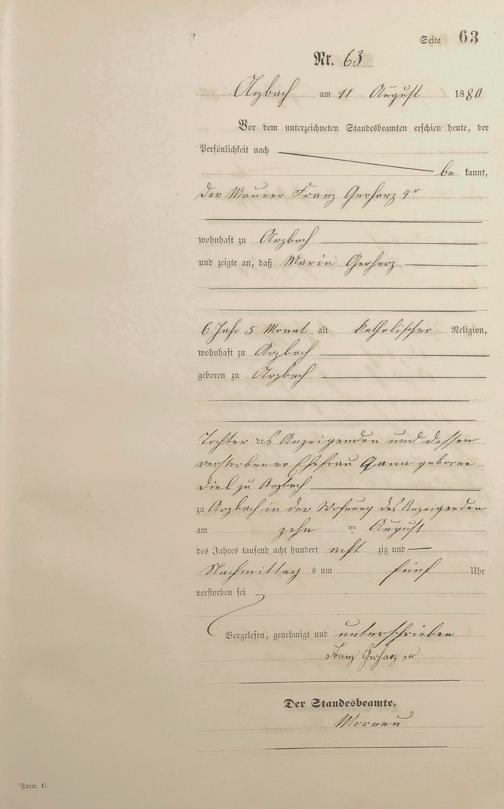 Seite 63
Nr. 63
Arzbach am 11 August 1880
Vor dem unterzeichneten Standesbeamten erschien heute, der
Persönlichkeit nach
be kannt,
der Maurer Franz Gerharz
wohnhaft zu Arzbach
und zeigte an, daß Maria Gerharz
6 Jahr 5 Monat alt katholischer Religion,
wohnhaft zu Arzbach
geboren zu Arzbach
Tochter des Anzeigenden und dessen
verstorbener Ehefrau geborene
Diel zu Arzbach
zu Arzbach in der Wohnung des Anzeigenden
am zehn ten August
des Jahres tausend acht hundert acht zig und
Nachmittag s um fünf Uhr
verstorben sei
Vorgelesen, genehmigt und unterschrieben
Franz Gerharz
Der Standesbeamte.
Form. C.